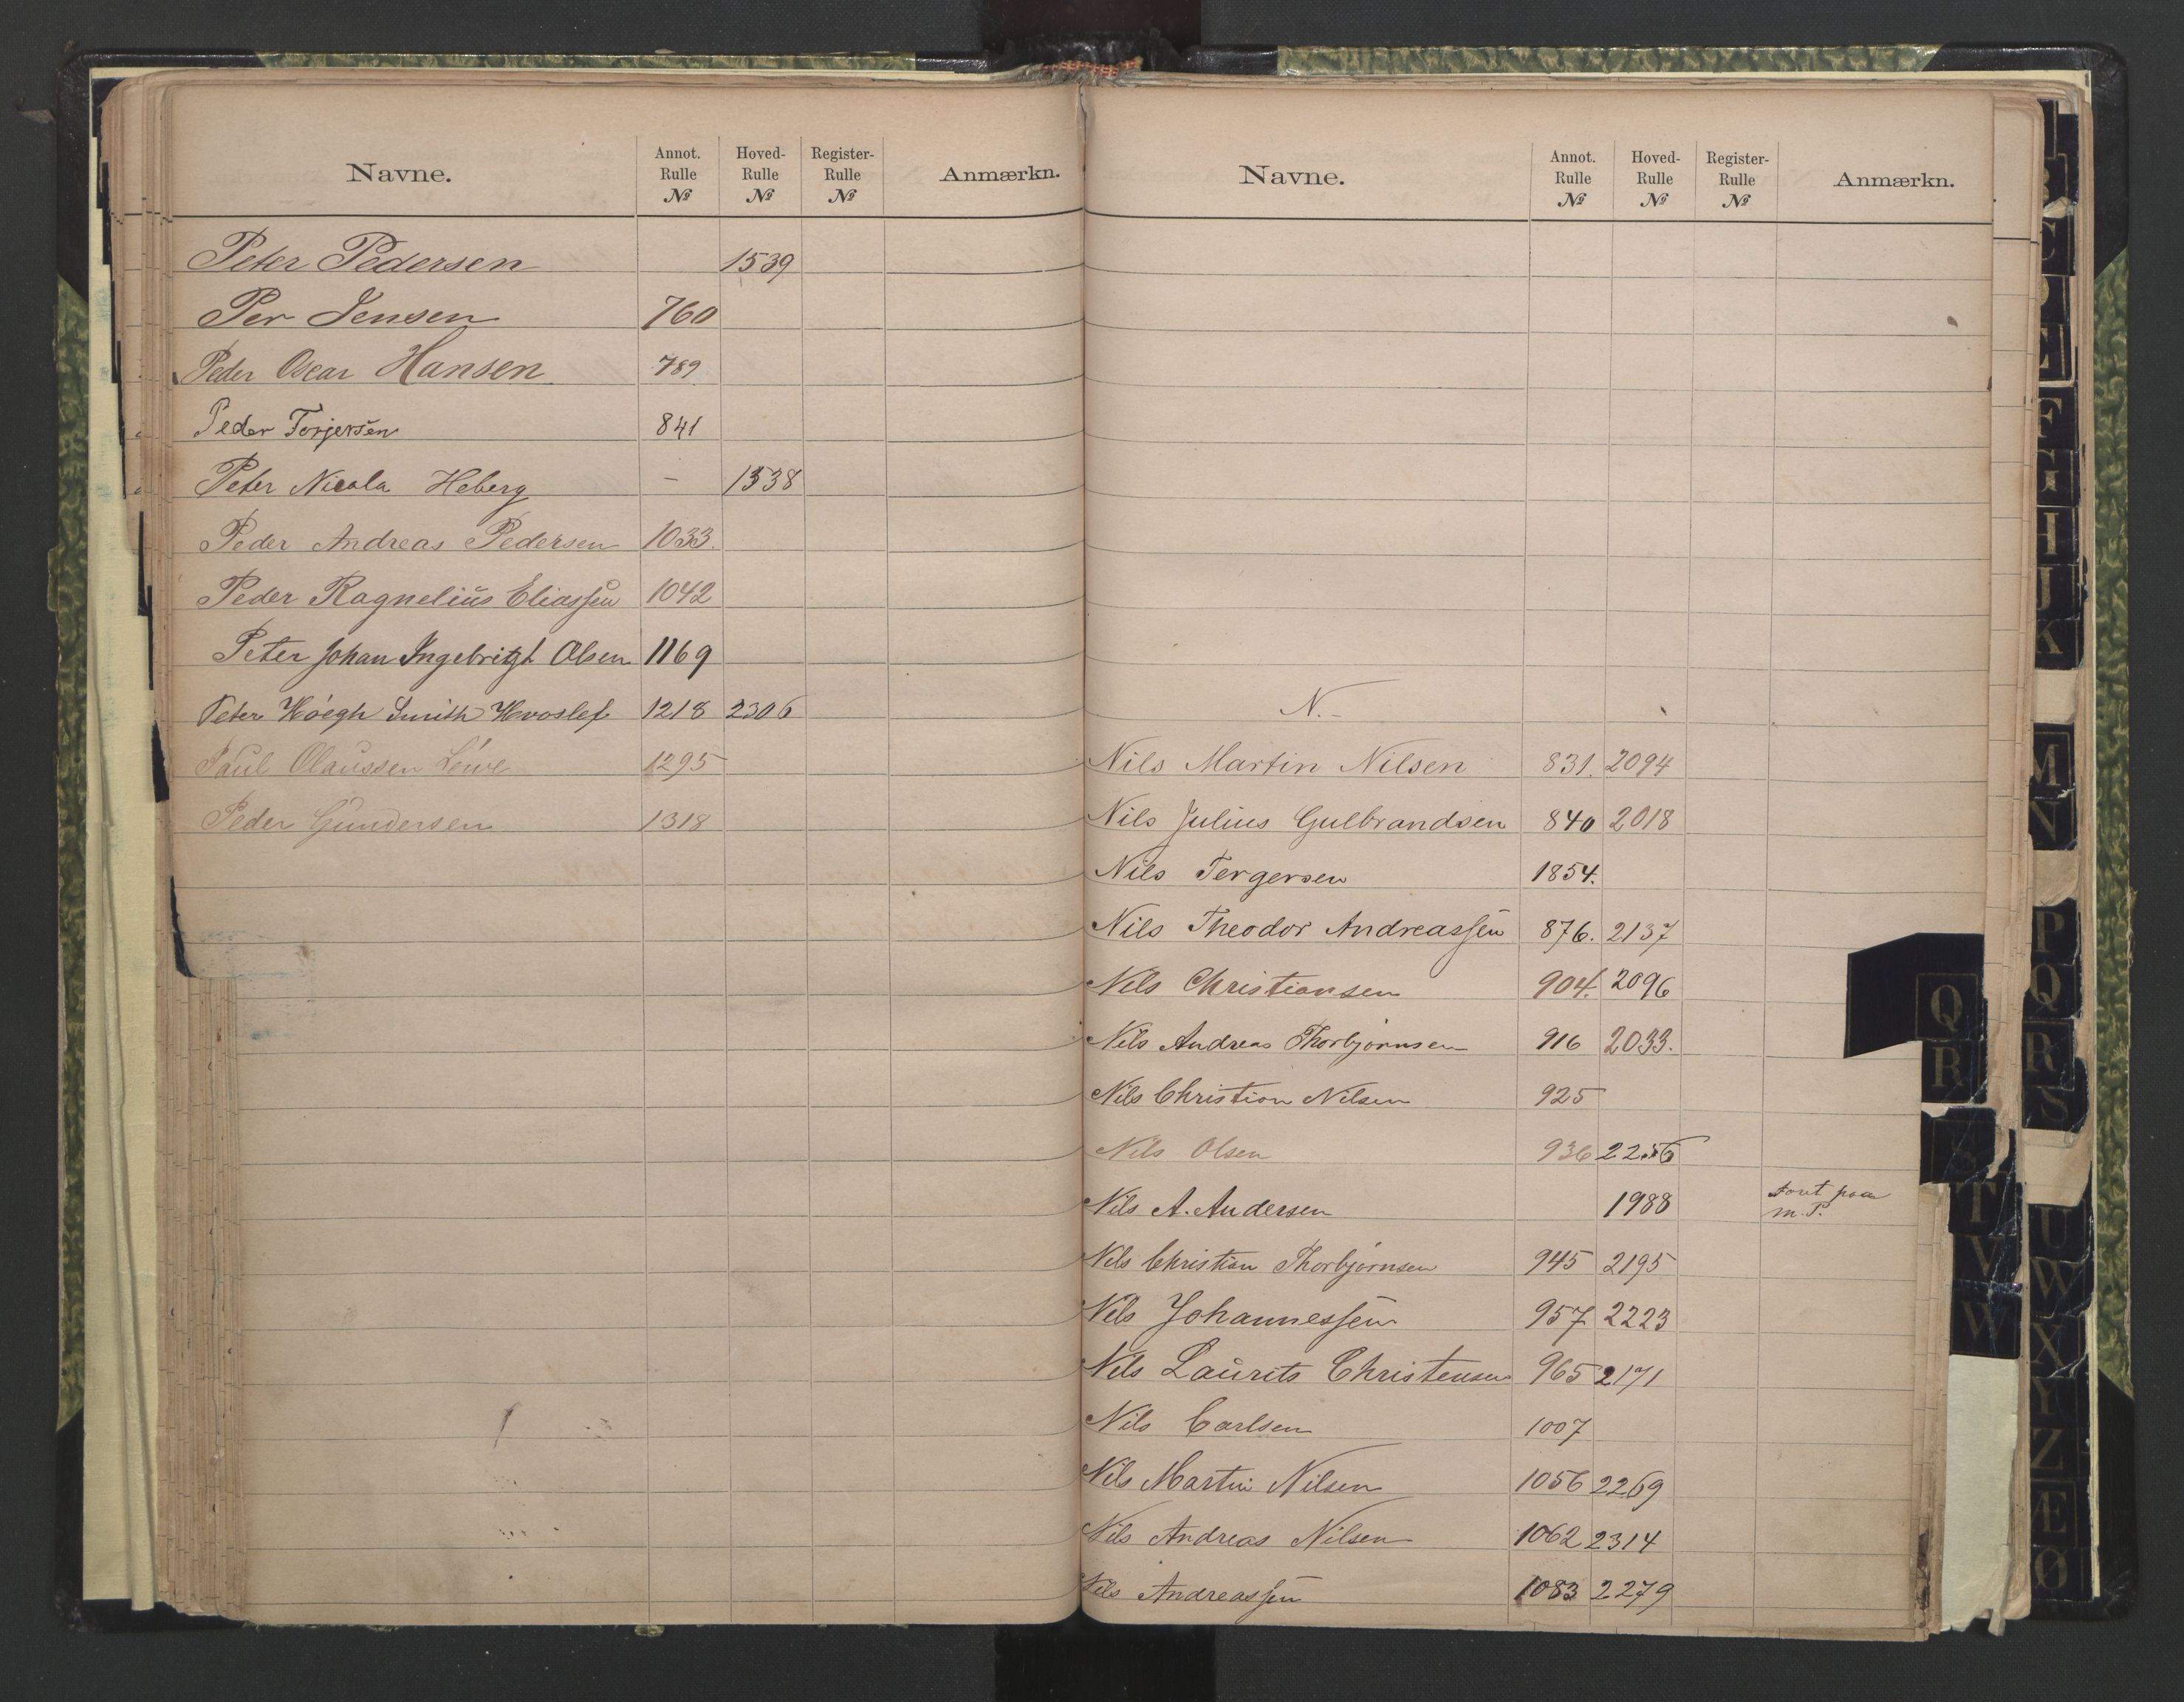 Navne. Annot. Rulle № Hoved-Rulle № Register-Rulle № Anmærkn.
Peter Pedersen 1539
Per Jensen 760
Peder Oscar Hansen 789
Peder Torjersen 841
Peter Nicola Heberg — 1538
Peder Andreas Pedersen 1033.
Peder Ragnelius Eliassen 1042
Peter Johan Ingebrigt Olsen 1169
Peter Høegh Smith Hvoslef 1218 2306
Paul Olaussen Löwe 1295
Peder Gundersen 1318
Navne. Annot. Rulle № Hoved-Rulle № Register-Rulle № Anmærkn.
N.-
Nils Martin Nilsen 831. 2094
Nils Julius Gulbrandsen 840 2018
Nils Tergersen 1854.
Nils Theodor Andreassen 876. 2137
Nils Christiansen 904. 2096
Nils Andreas Thorbjørnsen 916 2033.
Nils Christian Nilsen 925
Nils Olsen 936 2256
Nils A. Andersen 1988 paa
m. P.
Nils Christian Thorbjørnsen 945 2195
Nils Johannessen 957 2223
Nils Laurits Christensen 965 2171
Nils Carlsen 1007
Nils Martin Nilsen 1056 2269
Nils Andreas Nilsen 1062 2314
Nils Andreassen 1083 2279
Q
R
S
T
V
W
C
E
F
G
H
J
K
M
N
P
Q
R
S
U
W
X
Y
Z
Æ
Ø